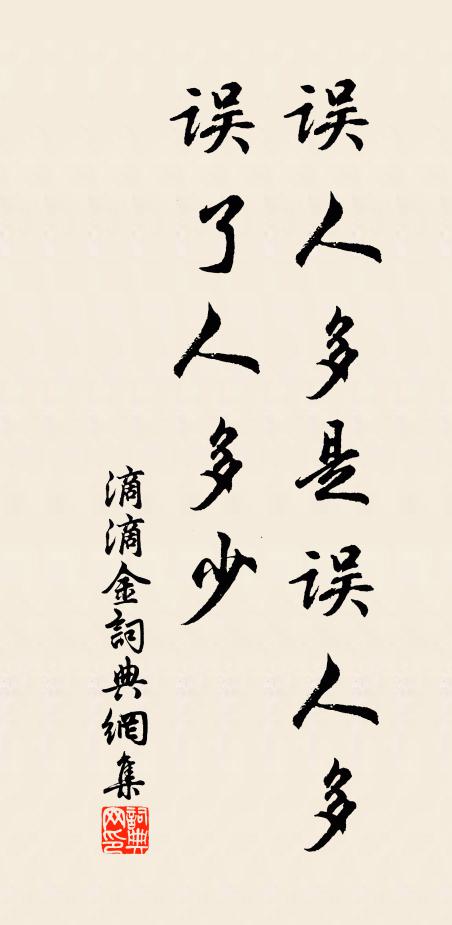 误人多是误人多
误了人多少
滴滴金詞典網集
詞典
网印